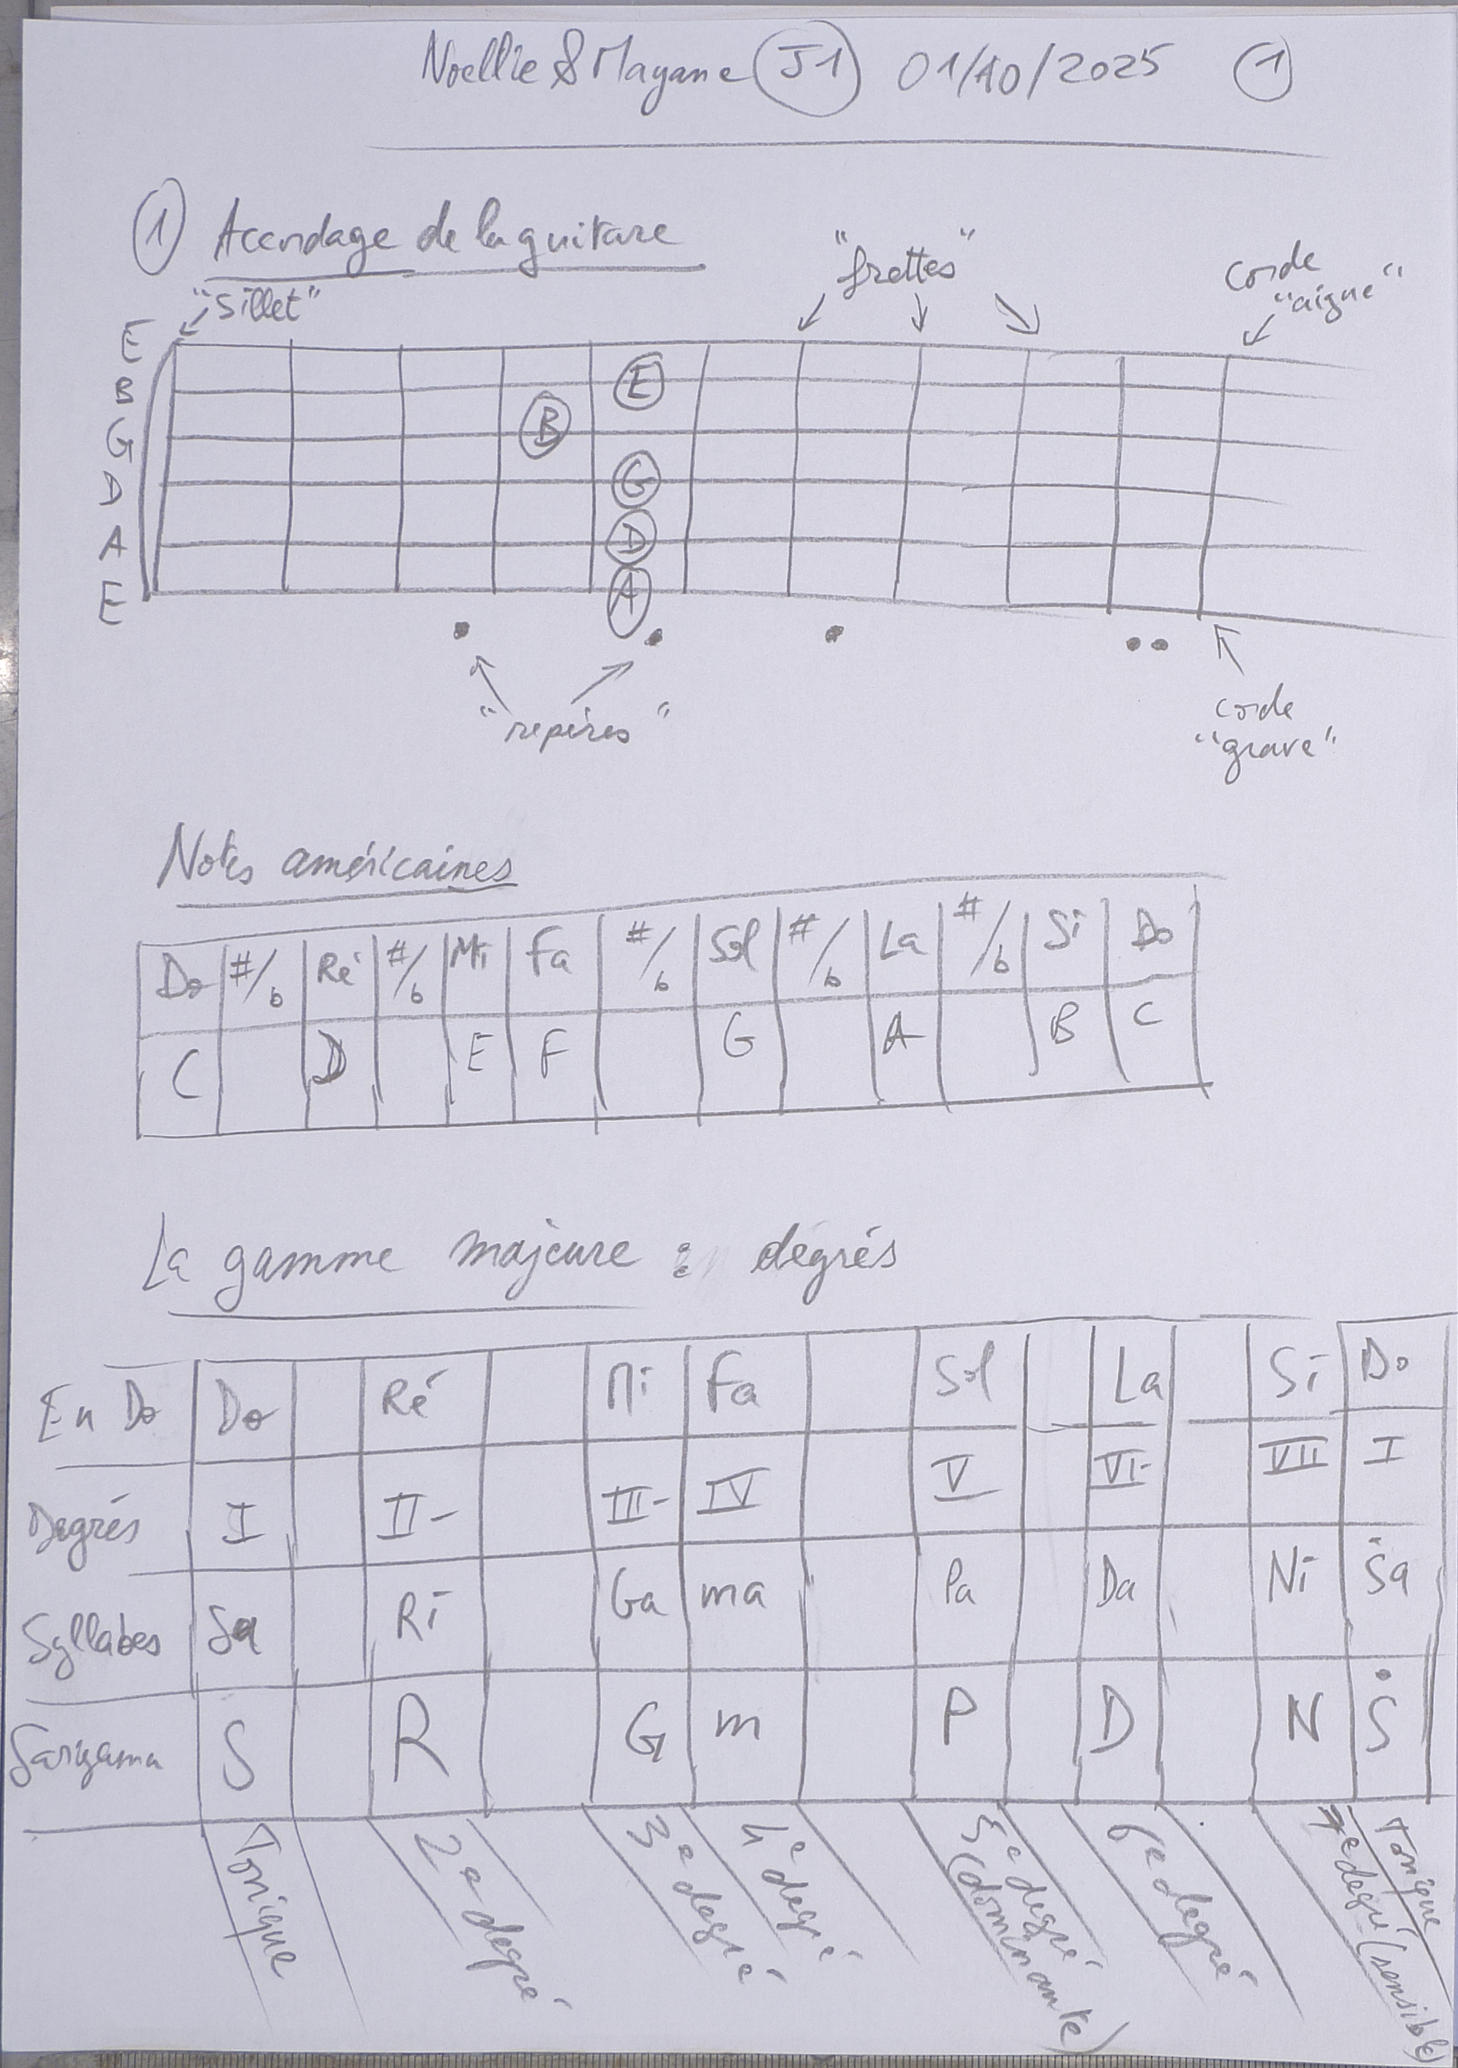 Noellie & Mayane J1 01/10/2025 1
1 Accordage de la guitare
"Sillet"
"frettes"
corde
"aigue"
E
B
G
D
A
E
E
B
G
D
A
"repères"
corde
"grave"
Notes américaines
Do #/b Ré #/b Mi Fa #/b Sol #/b La #/b Si Do
C D E F G A B C
La gamme majeure : degrés
En Do Do Ré Mi Fa Sol La Si Do
Degrés I II- III- IV V VI- VII I
Syllabes Sa Ri Ga ma Pa Da Ni Ṡa
Sargama S R G m P D N Ṡ
Tonique
2e degré
3e degré
4e degré
5e degré
(dominante)
6e degré
7e degré (sensible)
Tonique